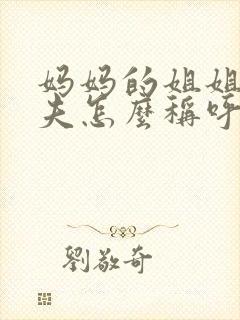 妈妈的姐姐
夫怎麼稱呼
劉敬奇